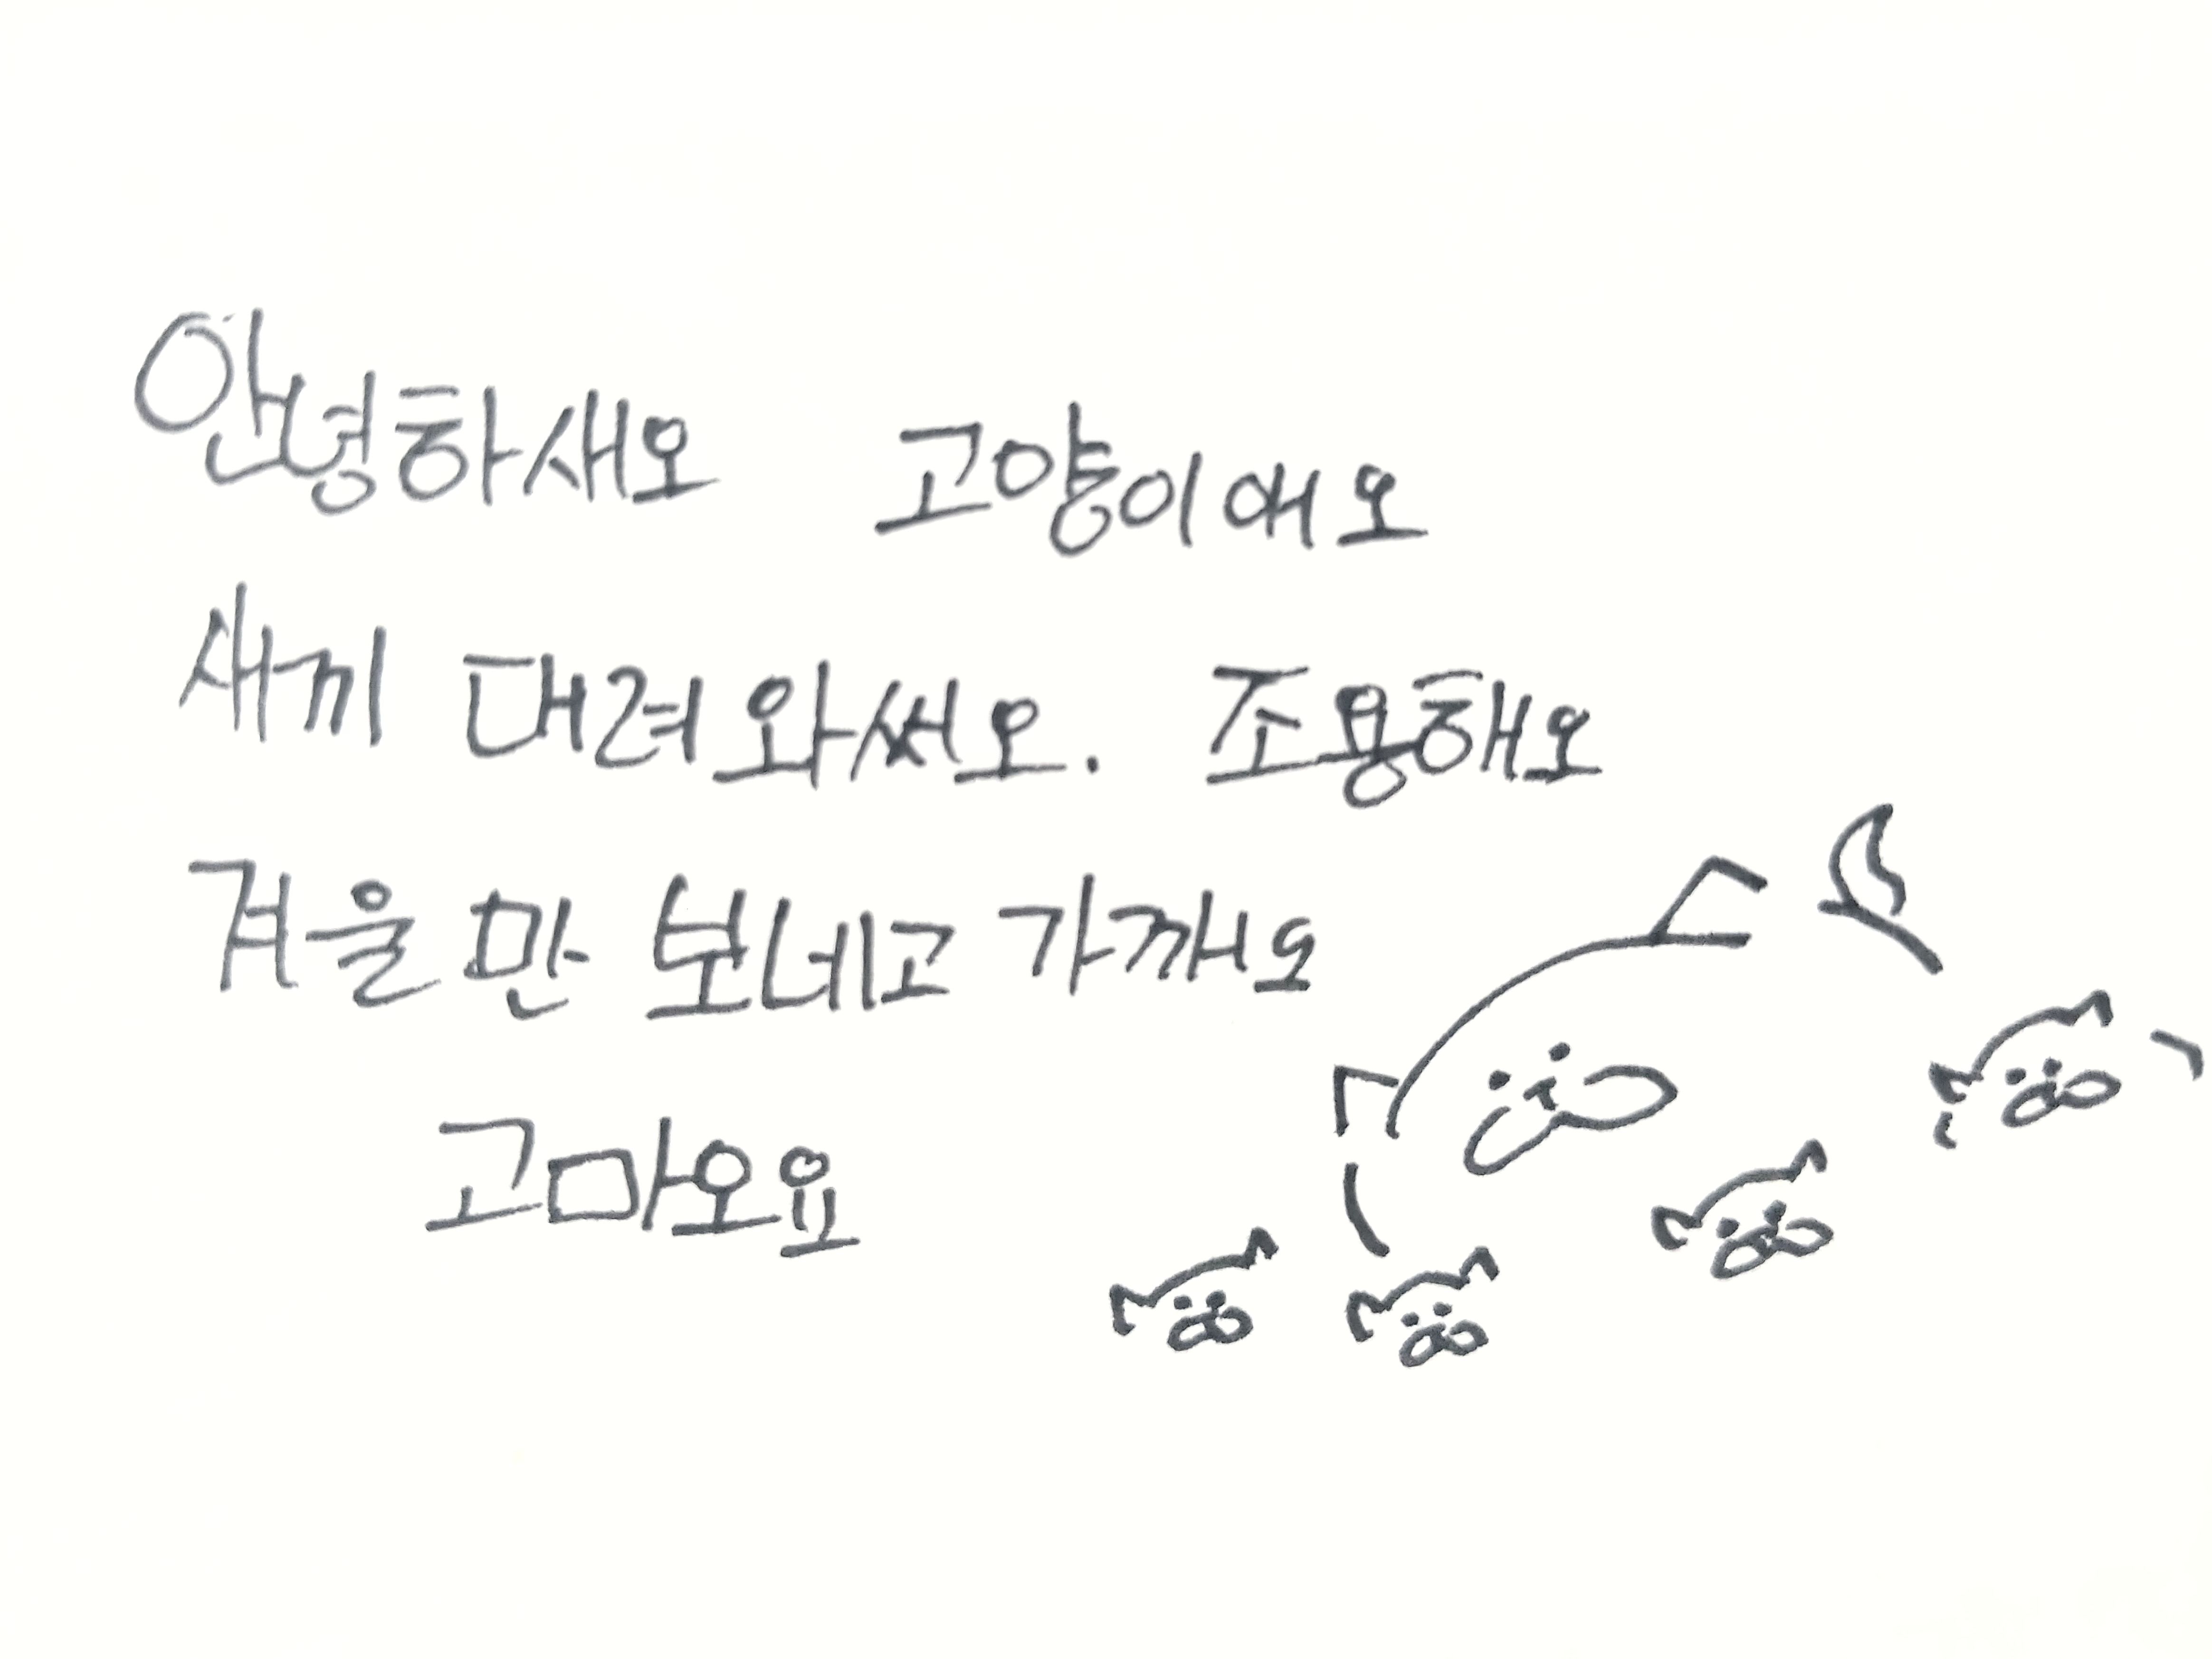 안녕하새오 고양이애오
새끼 대려와써오. 조용해오
겨울만 보네고 가깨오
고마오요